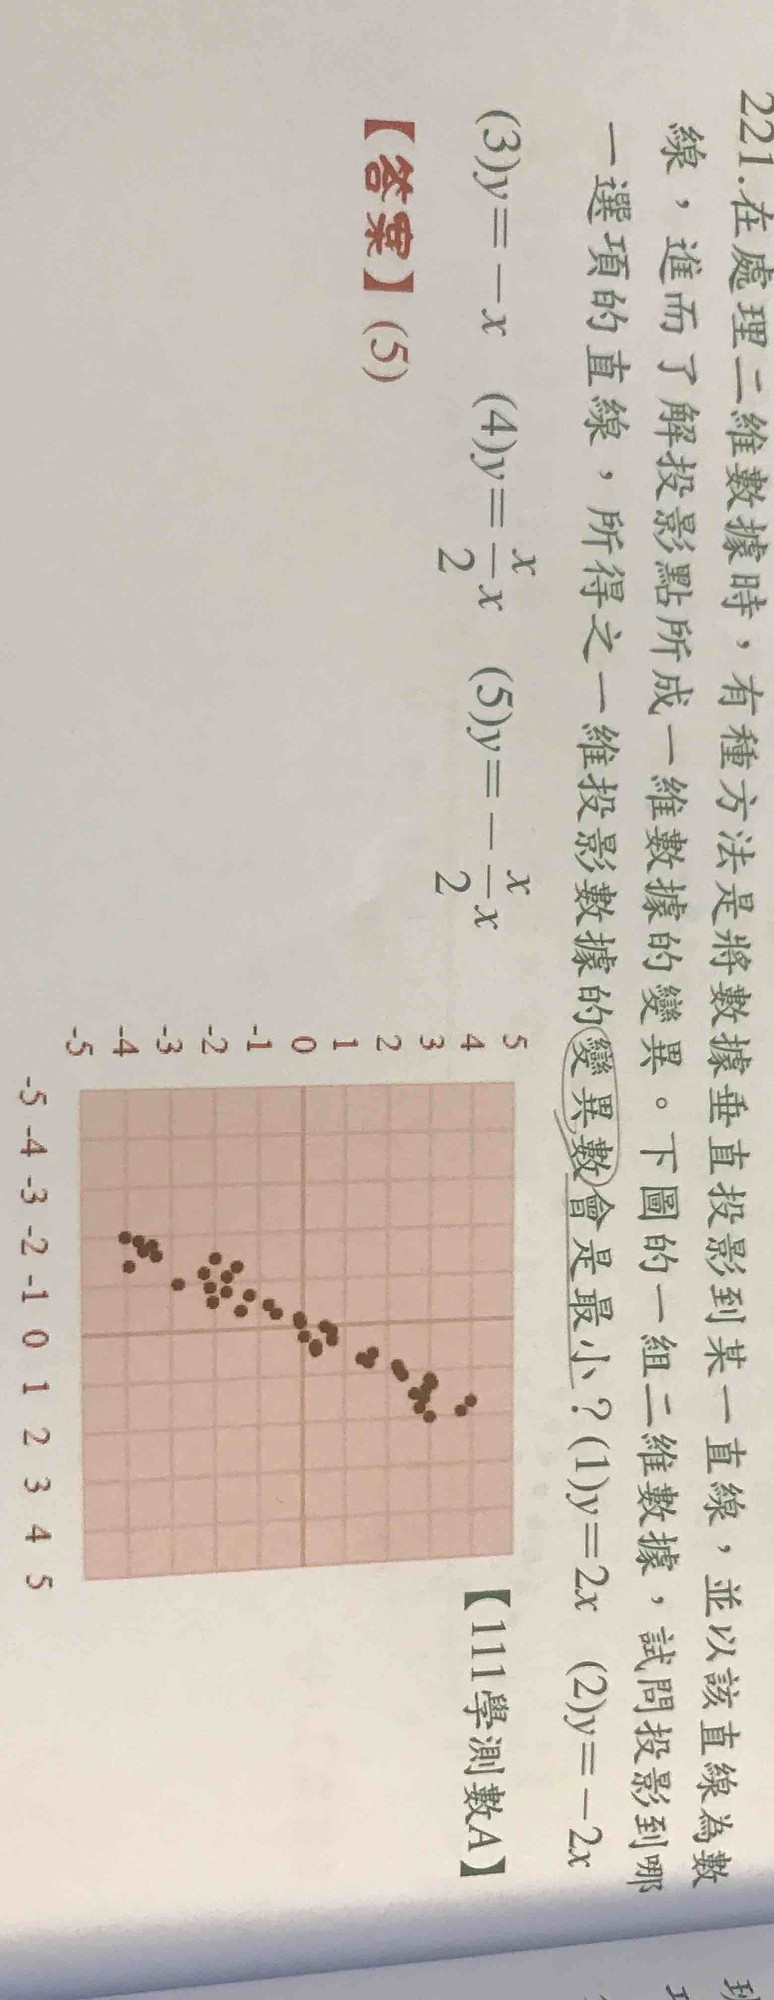 221.在處理二維數據時，有種方法是將數據垂直投影到某一直線，並以該直線為數
線，進而了解投影點所成一維數據的變異。下圖的一組二維數據，試問投影到哪
一選項的直線，所得之一維投影數據的變異數會是最小？(1)y=2x (2)y=-2x
(3)y=-x (4)y=x/2 x (5)y=-x/2 x
【111學測數A】
【答案】(5)
5
4
3
2
1
0
-1
-2
-3
-4
-5
-5 -4 -3 -2 -1 0 1 2 3 4 5